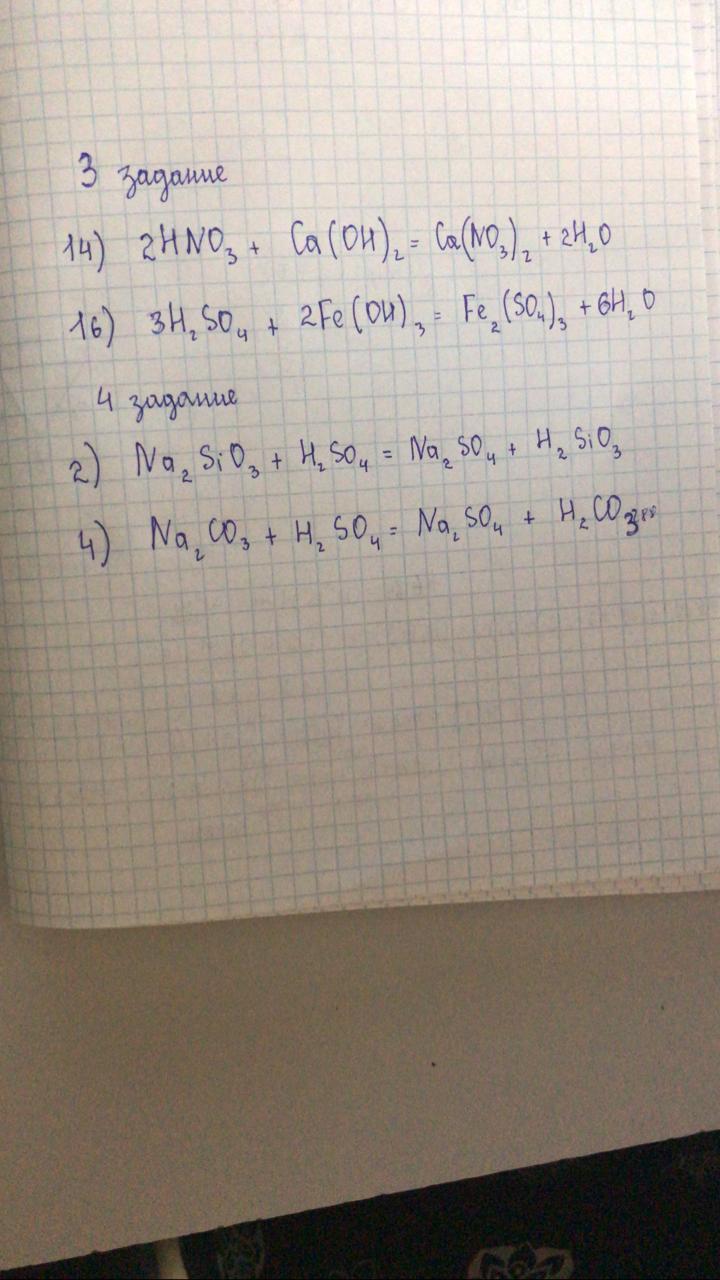 3 задание
14) 2HNO₃ + Ca(OH)₂ = Ca(NO₃)₂ + 2H₂O
16) 3H₂SO₄ + 2Fe(OH)₃ = Fe₂(SO₄)₃ + 6H₂O
4 задание
2) Na₂SiO₃ + H₂SO₄ = Na₂SO₄ + H₂SiO₃
4) Na₂CO₃ + H₂SO₄ = Na₂SO₄ + H₂CO₃